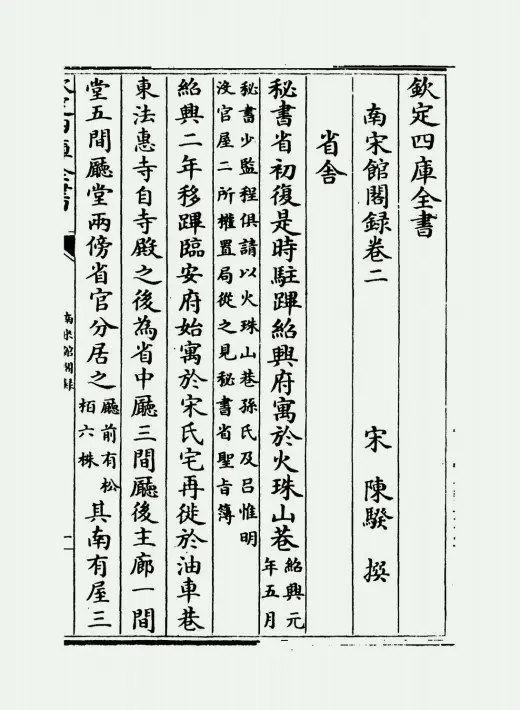 欽定四庫全書
南宋館閣録卷二
宋 陳騤 撰
省舎
秘書省初復是時駐蹕紹興府寓於火珠山巷紹興元年五月
秘書少監程俱請以火珠山巷孫氏及吕惟明
没官屋二所權置局從之見秘書省聖旨簿
紹興二年移蹕臨安府始寓於宋氏宅再徙於油車巷
東法惠寺自寺殿之後為省中廳三間廳後主廊一間
堂五間廳堂兩傍省官分居之廳前有松栢六株其南有屋三
南宋館閣録